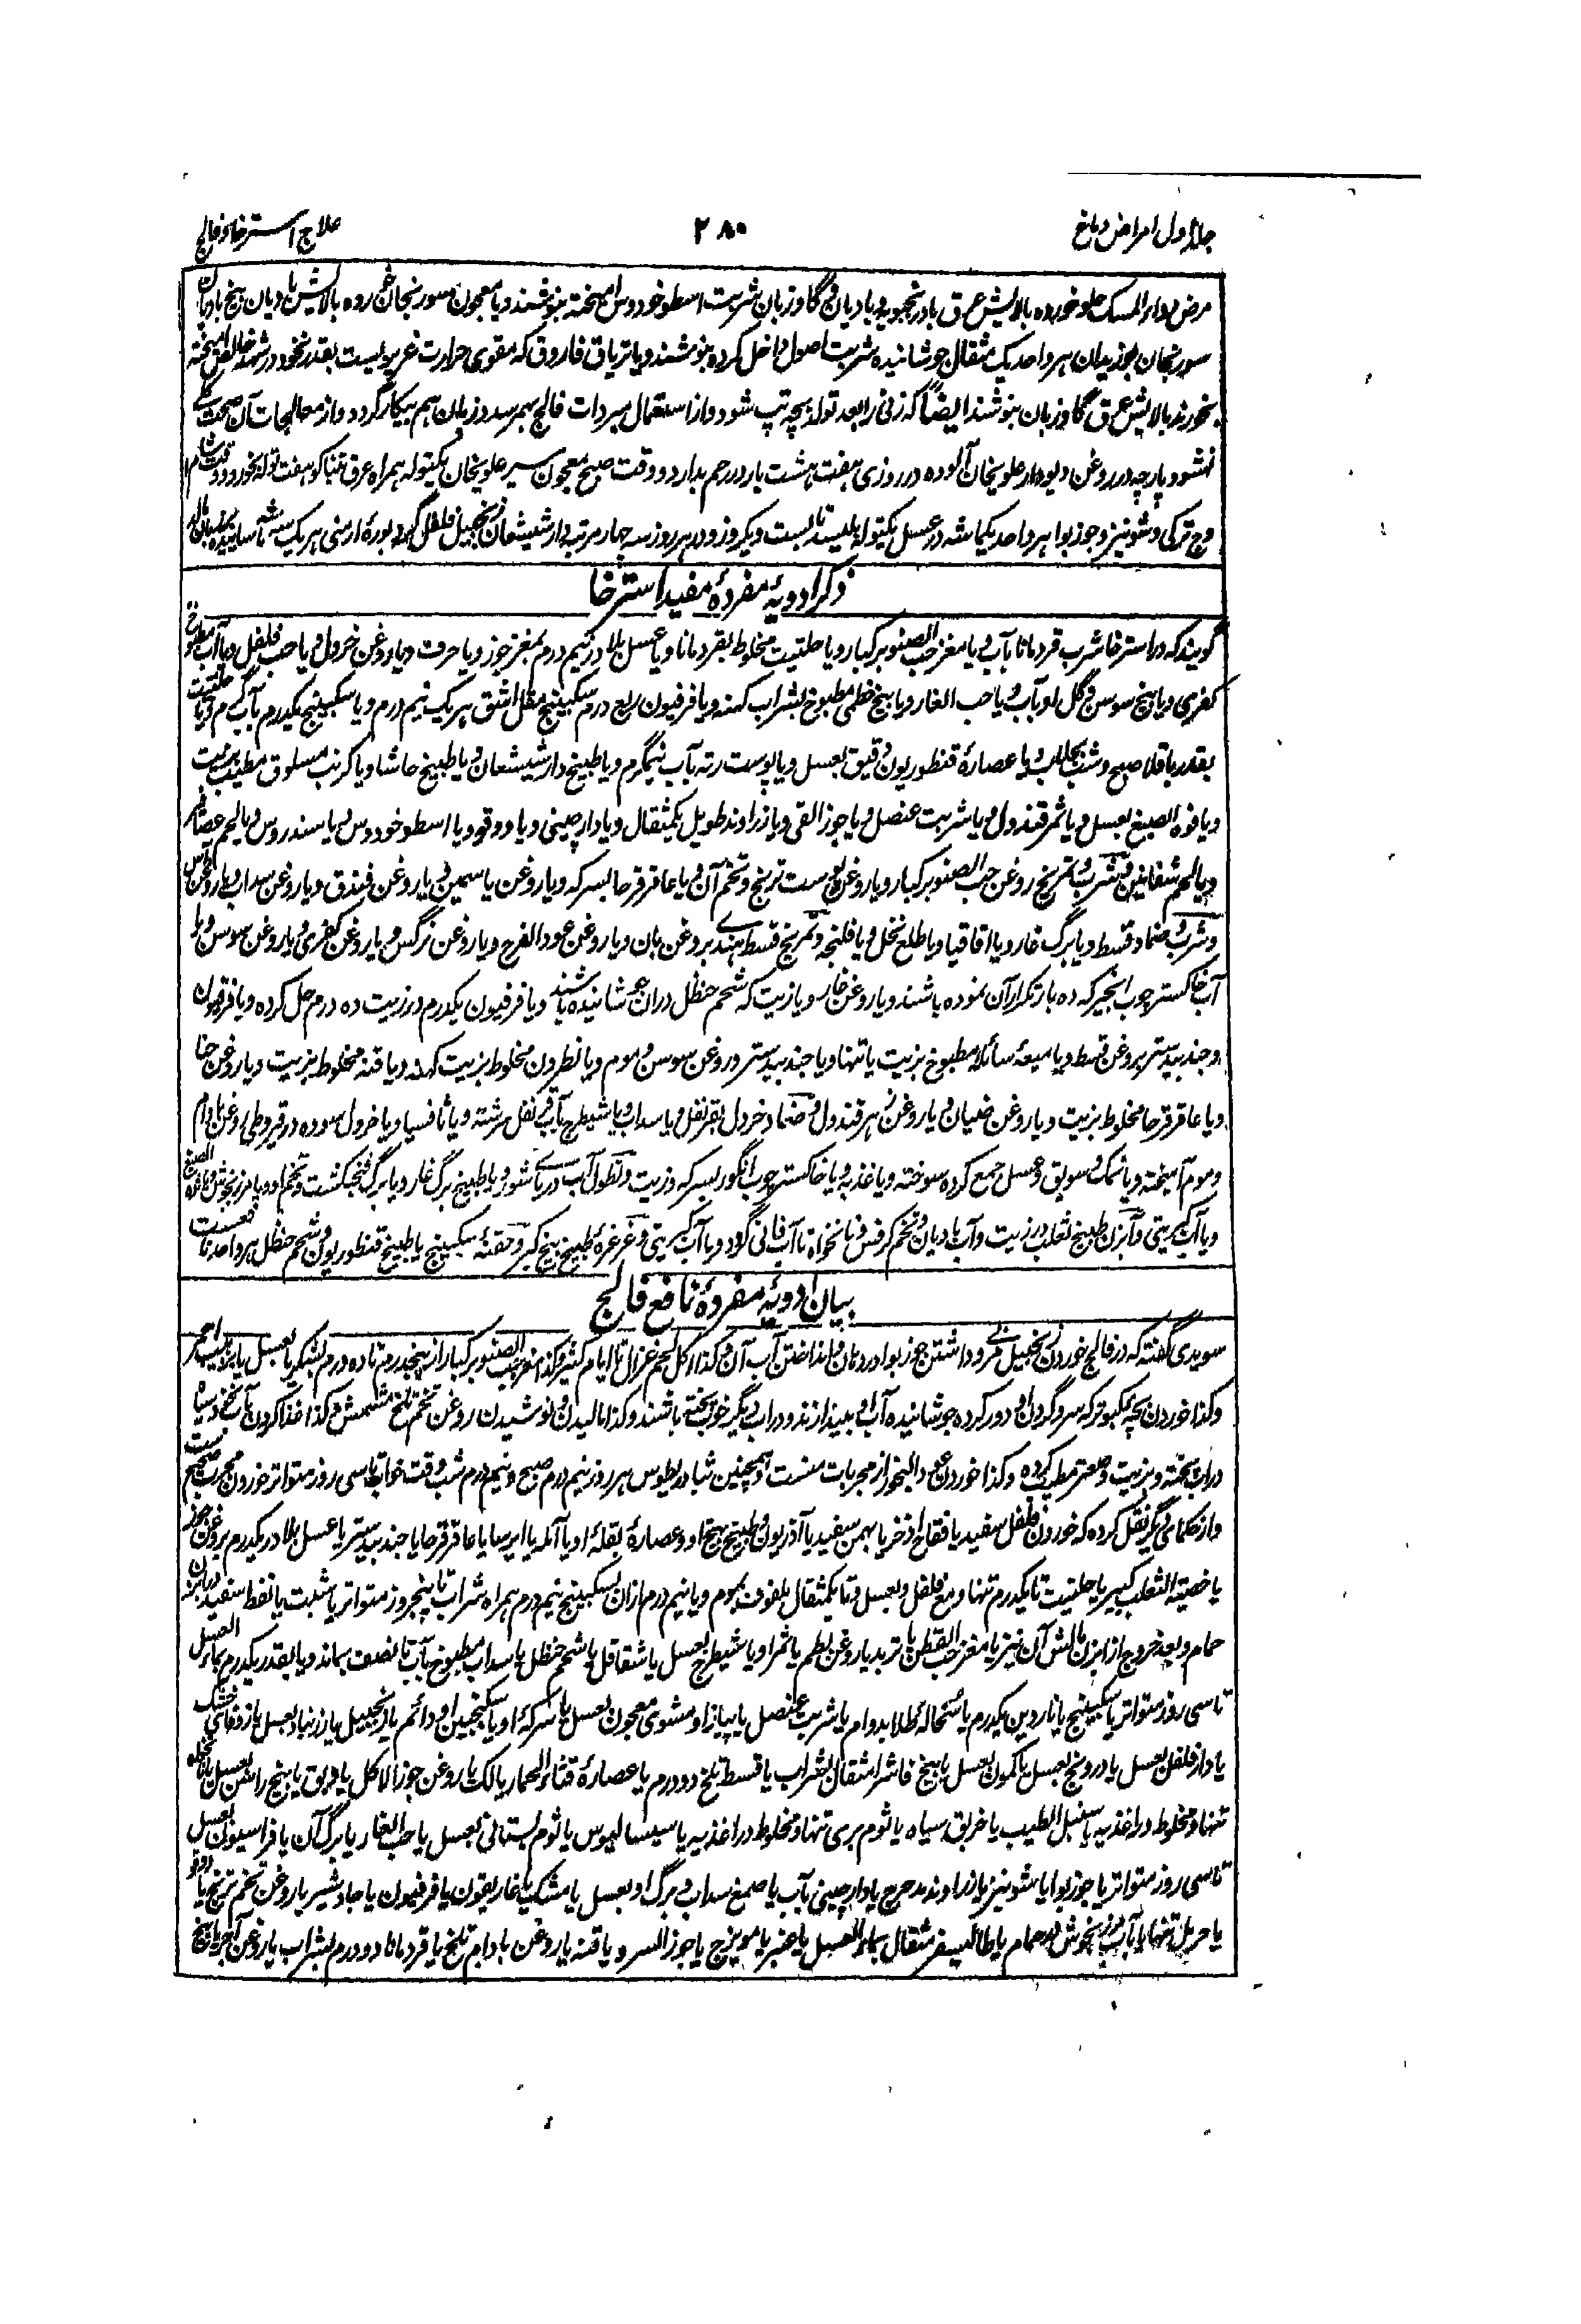 جلد اول امراض دماغ
۲۸۰
علاج استرخا و فالج
مرض دواء المسک حلو خورده بالایش عرق بادرنجبویه و بادیان و گاوزبان شربت اسطوخودوس آمیخته بنوشند و یا معجون سورنجان خورده بالایش بادیان بیخ بادیان
سورنجان بوزیدان هر واحد یک مثقال جوشانیده شربت اصول داخل کرده بنوشند و یا تریاق فاروق که مقوی حرارت غریزیست بقدر نخود در شهد خالص آمیخته
بخورند بالایش عرق گاوزبان بنوشند ایضاً که زنی را بعد تولد بچه تپ شود و از استعمال مبردات فالج بهم رسد و زبان هم بیکار گردد و از معالجات آن صحت
نشود پارچه در روغن دیودار علویخان آلوده در روزی هفت هشت بار در رحم بدارد و وقت صبح معجون سیر علویخان یکتوله همراه عرق تنباکو هفت توله بخورد و وقت شام
وج ترکی و شونیز و جوزبوا هر واحد یکماشه در عسل یکتوله بلیسد تا بست و یکروز و در هر روز سه چهار مرتبه دارشیشعان زنجبیل فلفل گرد بوره ارمنی هر یک سه ماشه ساییده بر زبان مالد
ذکر ادویهٔ مفردهٔ مفید استرخا
گویند که در استرخا شرب قردمانا بآب و یا مغز حب الصنوبر کبار و یا حلتیت مخلوط بقردمانا و یا عسل بلادر نیم درم بمغز جوز و یا حرف و یا روغن خردل و یا حب فلفل و یا آب مطبوخ
کفری و یا بیخ سوسن و گل او بآب و یا حب الغار و یا بیخ خطمی مطبوخ بشراب کهنه و یا فرفیون ربع درم سکبینج مقل اشق هر یک نیم درم و یا سکبینج یکدرم بآب گرم و یا حلتیت
بقدر باقلا صبح و شب بجلاب و یا عصارهٔ قنطوریون دقیق بعسل و یا پوست رته بآب نیمگرم و یا طبیخ دارشیشعان و یا طبیخ حاشا و یا کرنب مسلوق مطیب بزیت
و یا فوه الصبغ بعسل و یا ثمر قندول و یا شربت عنصل و یا جوز القی و یا زراوند طویل یکمثقال و یا دارچینی و یا دوقو و یا اسطوخودوس و یا سندروس و یا لحم عصافیر
و یا لحم شفانین و شرب و تمریخ روغن حب الصنوبر کبار و یا روغن پوست ترنج و تخم آن و یا عاقرقرحا بسرکه و یا روغن یاسمین و یا روغن فندق و یا روغن سداب و یا روغن آس
و شرب و ضماد قسط و یا برگ غار و یا اقاقیا و یا طلع نخل و یا فلنجه و تمریخ قسط هندی بروغن بان و یا روغن عود الفرح و یا روغن نرگس و یا روغن کفری و یا روغن سوسن و یا
آب خاکستر چوب انجیر که ده بار تکرار آن نموده باشند و یا روغن غار و یا زیت که شحم حنظل دران جوشانیده باشند و یا فرفیون یکدرم در زیت ده درم حل کرده و یا فرفیون
و جندبیدستر بروغن قسط و یا میعهٔ سائله مطبوخ بزیت یا تنها و یا جندبیدستر در روغن سوسن و موم و یا نطرون مخلوط بزیت کهنه و یا قنه مخلوط بزیت و یا روغن حنا
و یا عاقرقرحا مخلوط بزیت و یا روغن ضیمران و یا روغن زهر قندول و ضماد خردل بقرنفل و یا سداب و یا شیطرج بآب قرنفل سرشته و یا ثافسیا و یا خردل سوده در قیروطی روغن بادام
و موم آمیخته و یا نمک و سویق و عسل جمع کرده سوخته و یا غذبه و یا خاکستر چوب انگور بسرکه و زیت و نطول آب دریای شور و یا طبیخ برگ غار و یا برگ پنجنگشت و تخم او و یا مرزنجوش و یا فوة الصبغ
و یا آب کبریتی و آبزن طبیخ ثعلب در زیت و آب بادیان و تخم کرفس و نانخواه تا آب فانی گردد و یا آب کبریتی و غرغرهٔ طبیخ بیخ کبر و حقنهٔ سکبینج یا طبیخ قنطوریون و شحم حنظل هر واحد نافعست
بیان ادویهٔ مفردهٔ نافع فالج
سویدی گفته که در فالج خوردن زنجبیل مربی و داشتن جوزبوا در دهان و انداختن آب آن و کذا اکل لحم غزال تا ایام کثیر و کذا مغز حب الصنوبر کبار از پنجدرم تا ده درم بشکر یا بعسل یا بزبیب احمر
و کذا خوردن بچه کبوتر که سر و گردن او دور کرده جوشانیده آب او بیندازند و در آب دیگر خوب پخته باشند و کذا مالیدن و نوشیدن روغن تخم تلخ مشمش و کذا غذا کردن بآب نخود سیاه
دران پخته و بزیت و صعتر مطیب کرده و کذا خوردن عود البخور از مجربات منست و همچنین ثبادریطوس هر روز نیم درم صبح و نیم درم شب وقت خواب تا سی روز متواتر خوردن مجرب صحیح ست
و از حکمای دیگر نقل کرده که خوردن فلفل سفید یا فقاح اذخر یا بهمن سفید یا آذریون و طبیخ بیخ او و عصارهٔ بقلهٔ او یا آمله یا ایرسا یا عاقرقرحا یا جندبیدستر یا عسل بلادر یکدرم بروغن جوز
یا خصیة الثعلب کبیر یا حلتیت تا یکدرم تنها و مع فلفل و بعسل و تا یکمثقال ملفوف بموم و یا نیم درم ازان بسکبینج نیم درم همراه شراب تا پنجروز متواتر یا شبت یا نفط سفید در آبزن
حمام و بعد خروج از آبزن مالش آن نیز یا مغز حب القطن یا تربد یا روغن بطم یا ثمر او یا شیطرج بعسل یا شقاقل یا شحم حنظل یا سداب مطبوخ بآب تا نصف بماند و یا بقدر یکدرم بماء العسل
تا سی روز متواتر یا سکبینج یا ناردین یکدرم یا سحالهٔ طلا بدوام یا شربت عنصل یا پیاز او مشوی معجون بعسل یا سرکهٔ او یا سکنجبین او دائم یا زنجبیل یا زرنباد بعسل یا زوفای خشک
یا دارفلفل بعسل یا درونج بعسل یا کمون بعسل یا بیخ فاشرا مثقال بشراب یا قسط تلخ دو درم یا عصارهٔ قثاء الحمار یا لک یا روغن جوز الاکل یا خربق یا بیخ راسن بعسل یا
تنها و مخلوط در اغذیه یا سنبل الطیب یا خربق سیاه یا ثوم بری تنها و مخلوط در اغذیه یا سیسالیوس یا ثوم بستانی بعسل یا حب الغار یا برگ آن یا فراسیون بعسل
تا سی روز متواتر یا جوزبوا یا شونیز یا زراوند مدحرج یا دارچینی بآب یا صمغ سداب و برگ او بعسل یا مشک یا غاریقون یا فرفیون یا جاوشیر یا روغن تخم ترنج یا دوقو
یا حرمل تنها یا بآب مرزنجوش در حمام یا طالیسفر مثقال بماء العسل یا عنبر یا مویزج یا جوز السرو یا قنه یا روغن بادام تلخ یا قردمانا دو درم بشراب یا روغن آجر یا بیخ